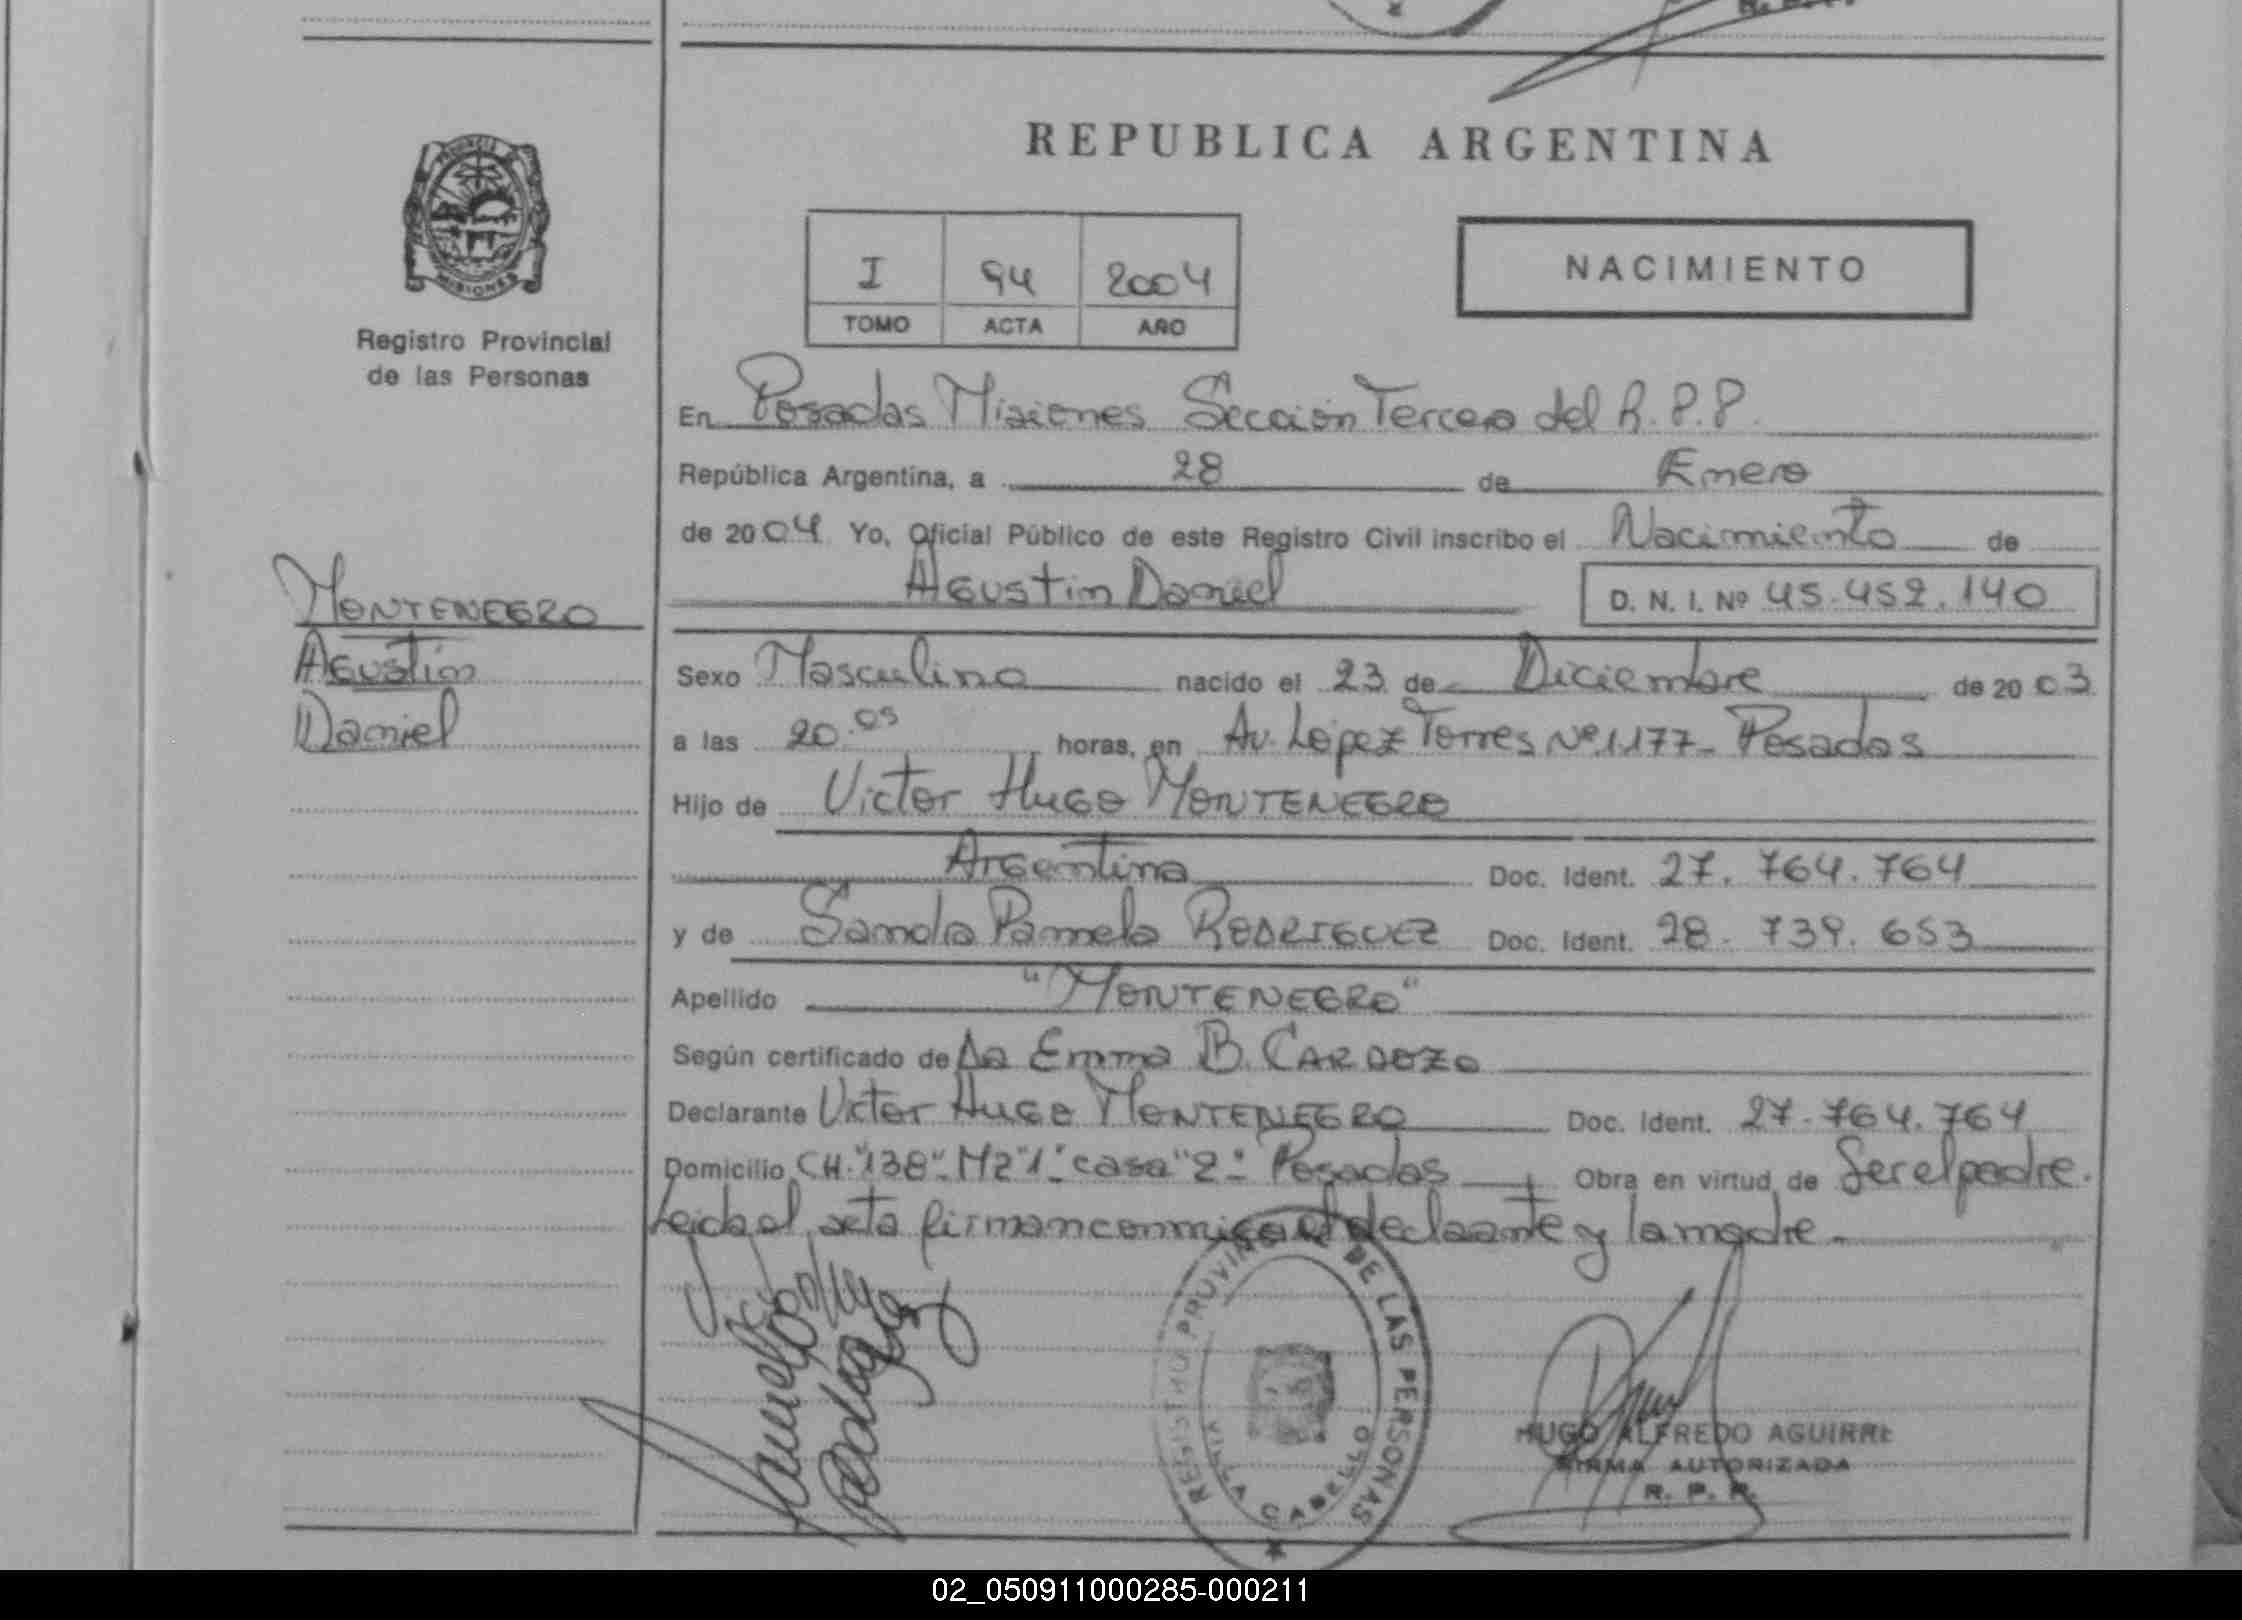 REPUBLICA ARGENTINA
PROVINCIA DE
MISIONES
Registro Provincial
de las Personas
I 94 2004
TOMO ACTA AÑO
NACIMIENTO
En Posadas Misiones Sección Tercera del R.P.P.
República Argentina, a 28 de Enero
de 2004 Yo, Oficial Público de este Registro Civil inscribo el Nacimiento de
Agustin Daniel D. N. I. Nº 45.452.140
MONTENEGRO
Agustin
Daniel
Sexo Masculino nacido el 23 de Diciembre de 2003
a las 20.05 horas, en Av. López Torres Nº 1177- Posadas
Hijo de Victor Hugo MONTENEGRO
Argentina Doc. Ident. 27.764.764
y de Sandra Pamela RODRIGUEZ Doc. Ident. 28.739.653
Apellido "MONTENEGRO"
Según certificado de Da Emma B. CARDOZO
Declarante Victor Hugo MONTENEGRO Doc. Ident. 27.764.764
Domicilio CH."138"-Mz"1"-casa"2"- Posadas Obra en virtud de Ser el padre.
Leida el acta firman conmigo el declarante y la madre.-
REGISTRO PROVINCIAL DE LAS PERSONAS
VILLA CABELLO
HUGO ALFREDO AGUIRRE
FIRMA AUTORIZADA
R. P. P.
02_050911000285-000211